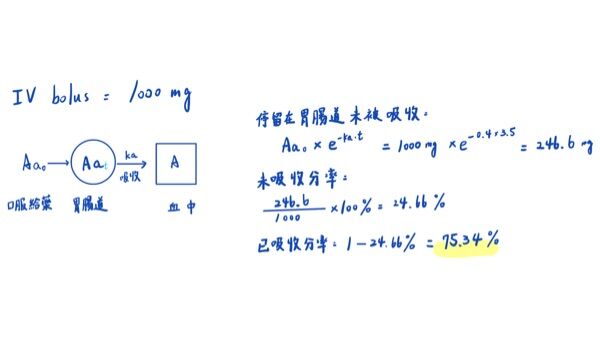 IV bolus = 1000 mg
Aa₀ → Aaₜ ka 吸收 → A
口服給藥 胃腸道 血中
停留在胃腸道未被吸收:
Aa₀ × e^-ka·t = 1000 mg × e^-0.4×3.5 = 246.6 mg
未吸收分率:
246.6/1000 ×100% = 24.66%
已吸收分率: 1-24.66% = 75.34%